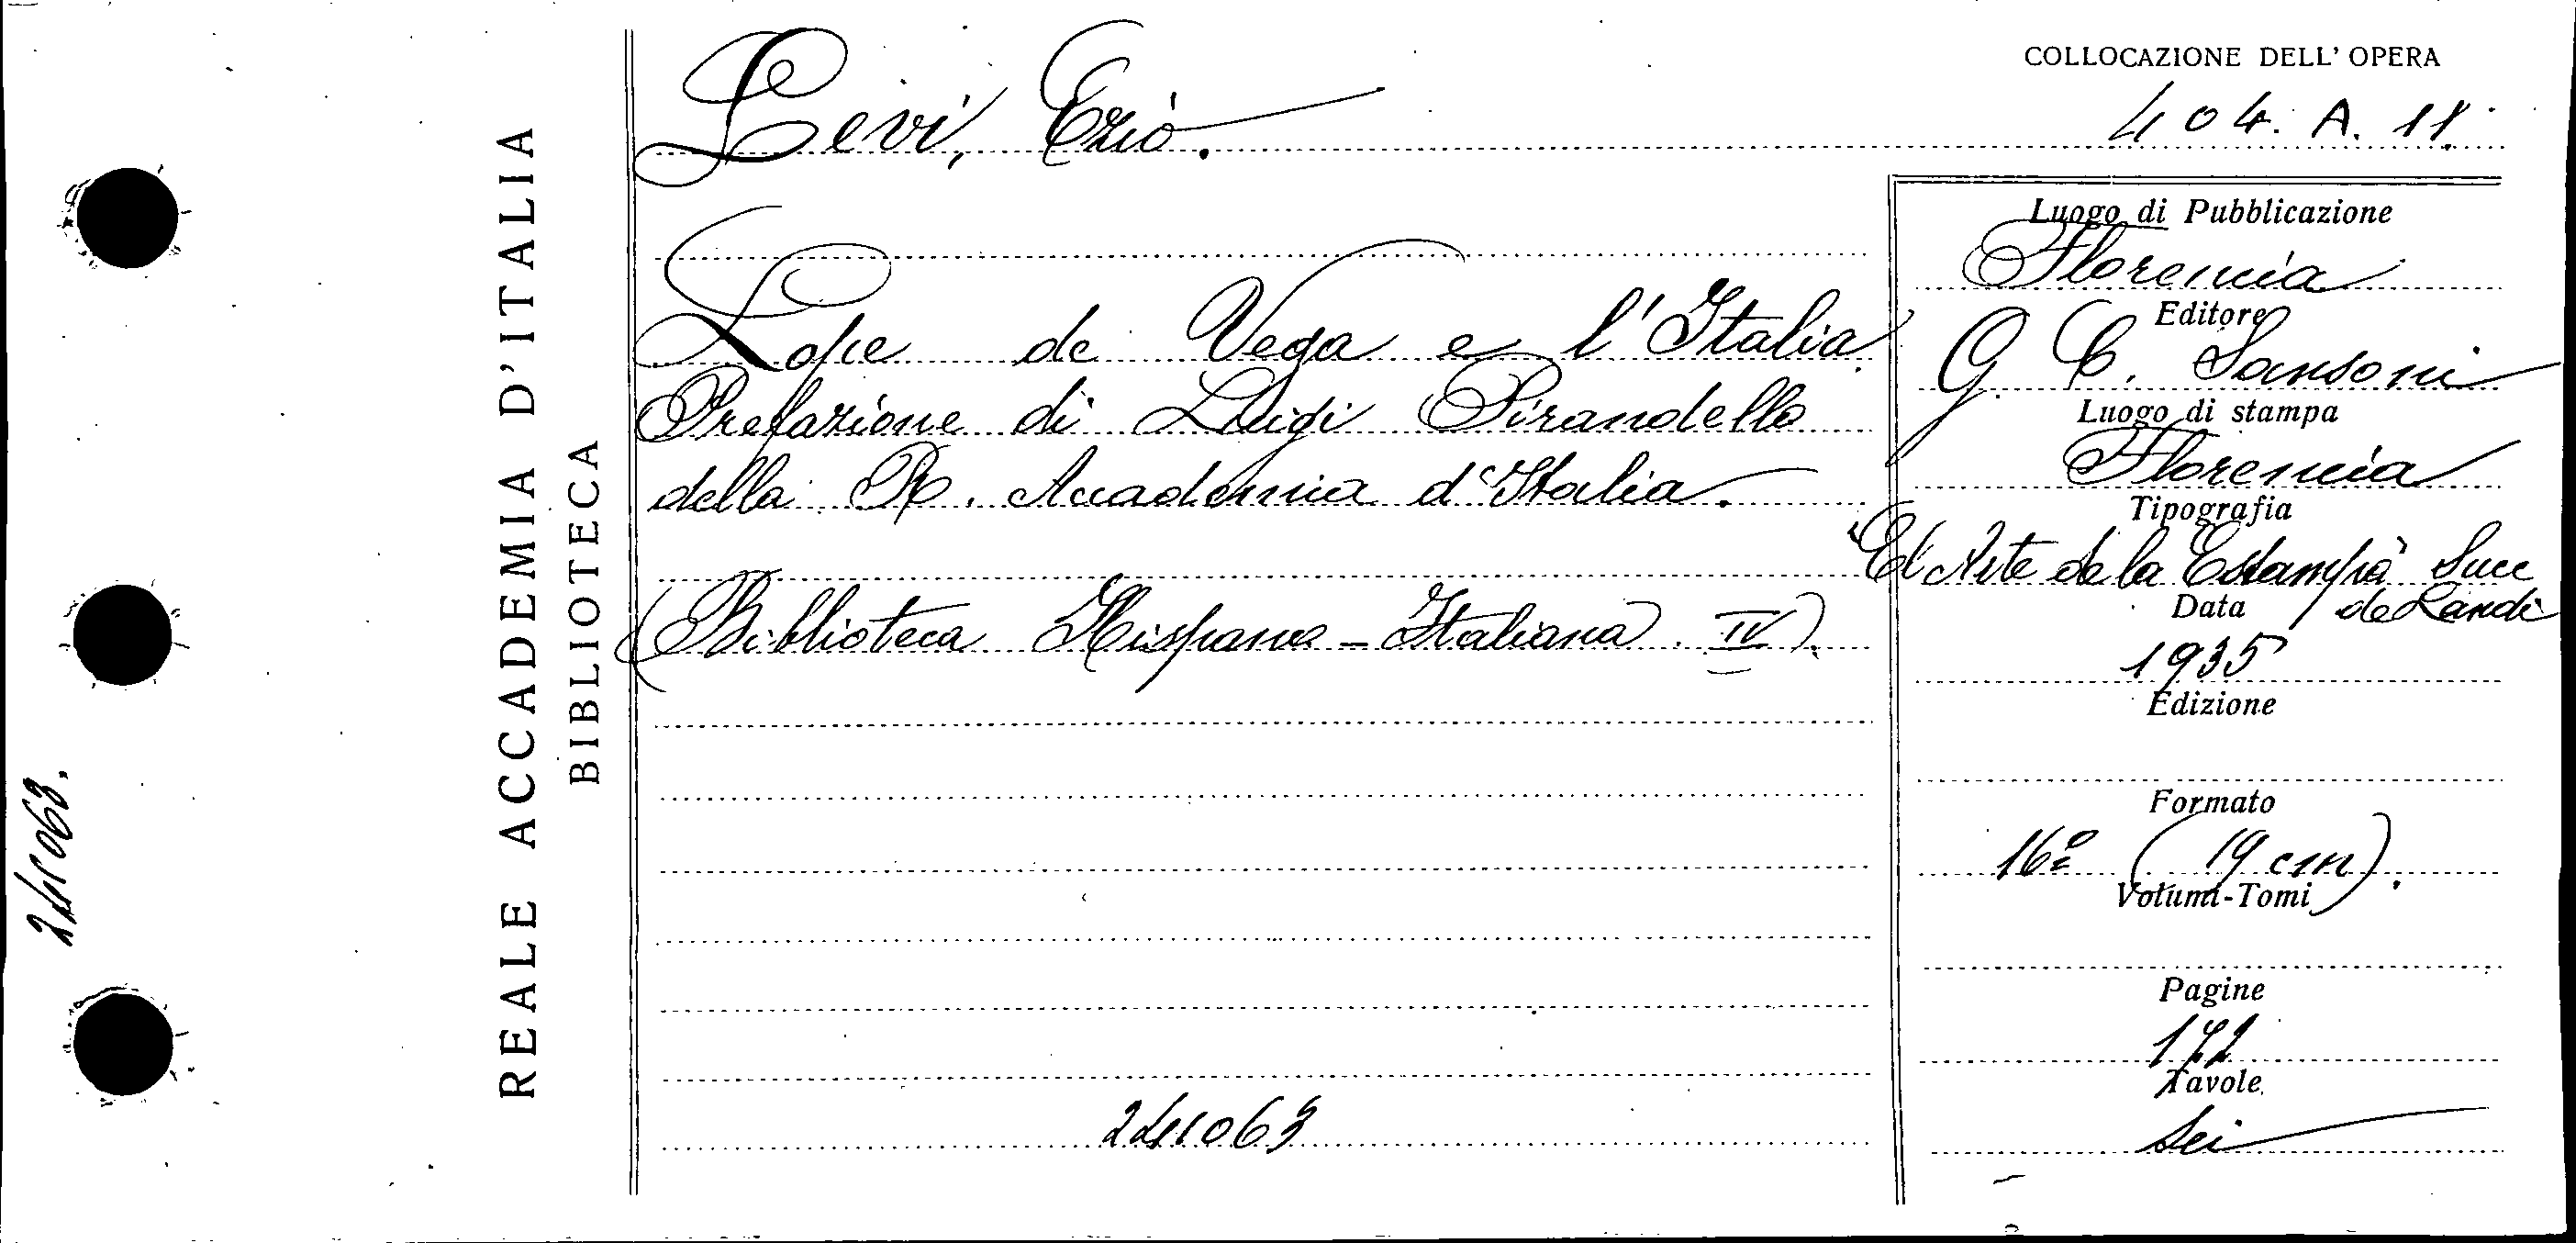 COLLOCAZIONE DELL' OPERA
Levi, Ezio.
404. A. 11.
REALE ACCADEMIA D'ITALIA
BIBLIOTECA
Lope de Vega e l'Italia.
Prefazione di Luigi Pirandello
della R. Accademia d'Italia.
(Biblioteca Hispano-Italiana. IV).
Luogo di Pubblicazione
Florencia
Editore
G. C. Sansoni
Luogo di stampa
Florencia
Tipografia
"El Arte de la Estampa" Succ
de Landi
Data
1935
Edizione
Formato
16º (19 cm).
Volumi-Tomi
Pagine
Tavole
sei